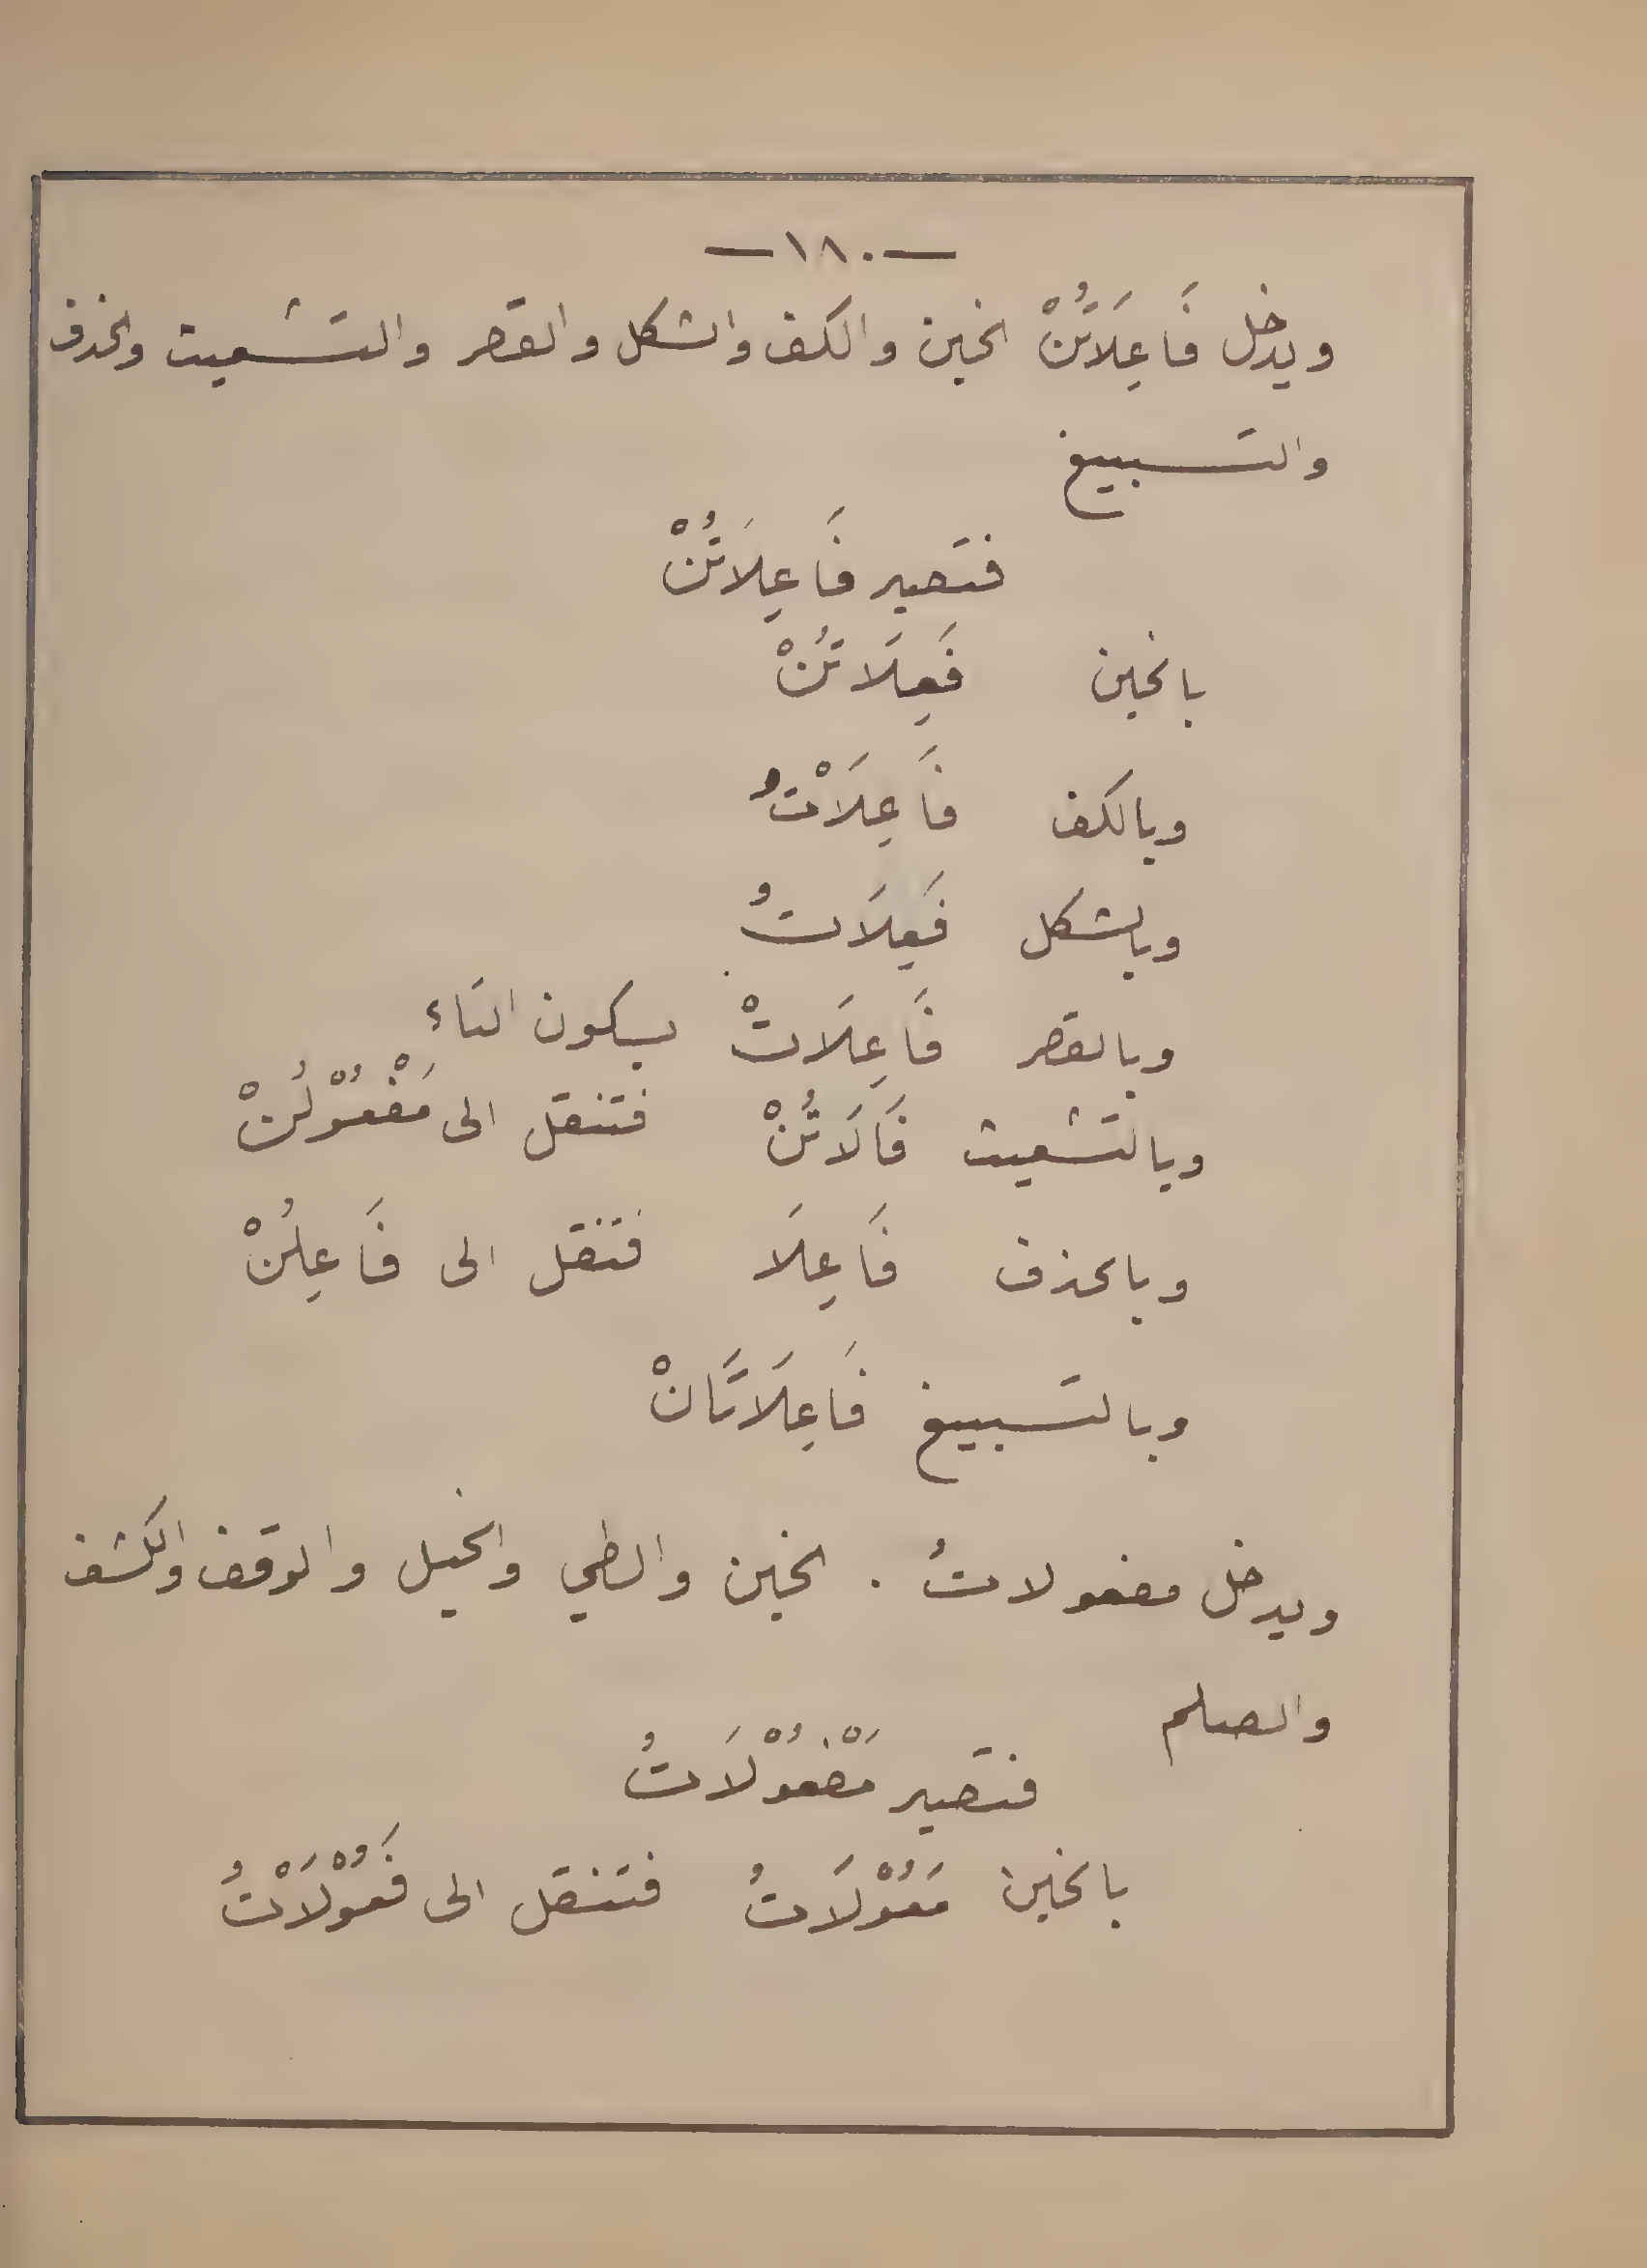 — ١٨٠ —
ويدخل فَاعِلَاتُنْ الخبن والكف والشكل والقصر والتشعيث والحذف
والتسبيغ
فتصير فَاعِلَاتُنْ
بالخبن فَعِلَاتُنْ
وبالكف فَاعِلَاْتُ
وبالشكل فَعِلَاتُ
وبالقصر فَاعِلَاتْ بسكون التاء
وبالتشعيث فَالَاتُنْ فتنقل الى مَفْعُوْلُنْ
وبالحذف فَاعِلَا فتنقل الى فَاعِلُنْ
وبالتسبيغ فَاعِلَاتَانْ
ويدخل مفعولاتُ . الخبن والطي والخبل والوقف والكشف
والصلم
فتصير مَفْعُوْلَاتُ
بالخبن مَعُوْلَاتُ فتنقل الى فَعُوْلَاْتُ